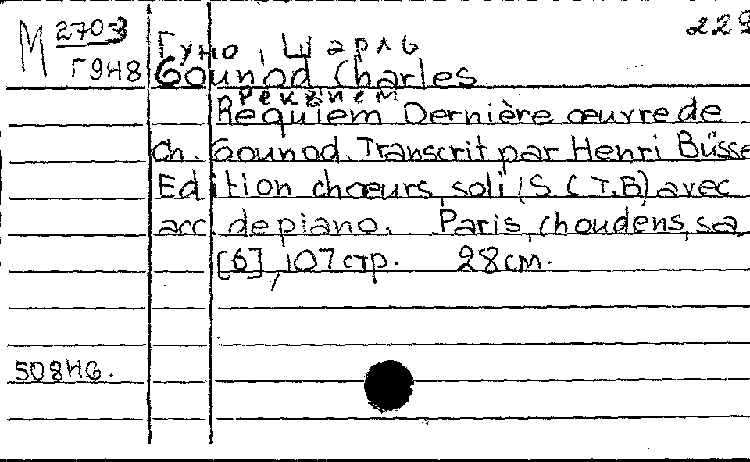 229
М 270-3
Г948
Гуно, Шарль
Gounod Charles
Реквием
Requiem Dernière œuvre de
Ch. Gounod. Transcrit par Henri Büsse
Edition chœurs, soli (S.C.T.B) avec
acc. de piano. Paris, Choudens, sa
[6], 107 стр. 28 см.
508НБ.